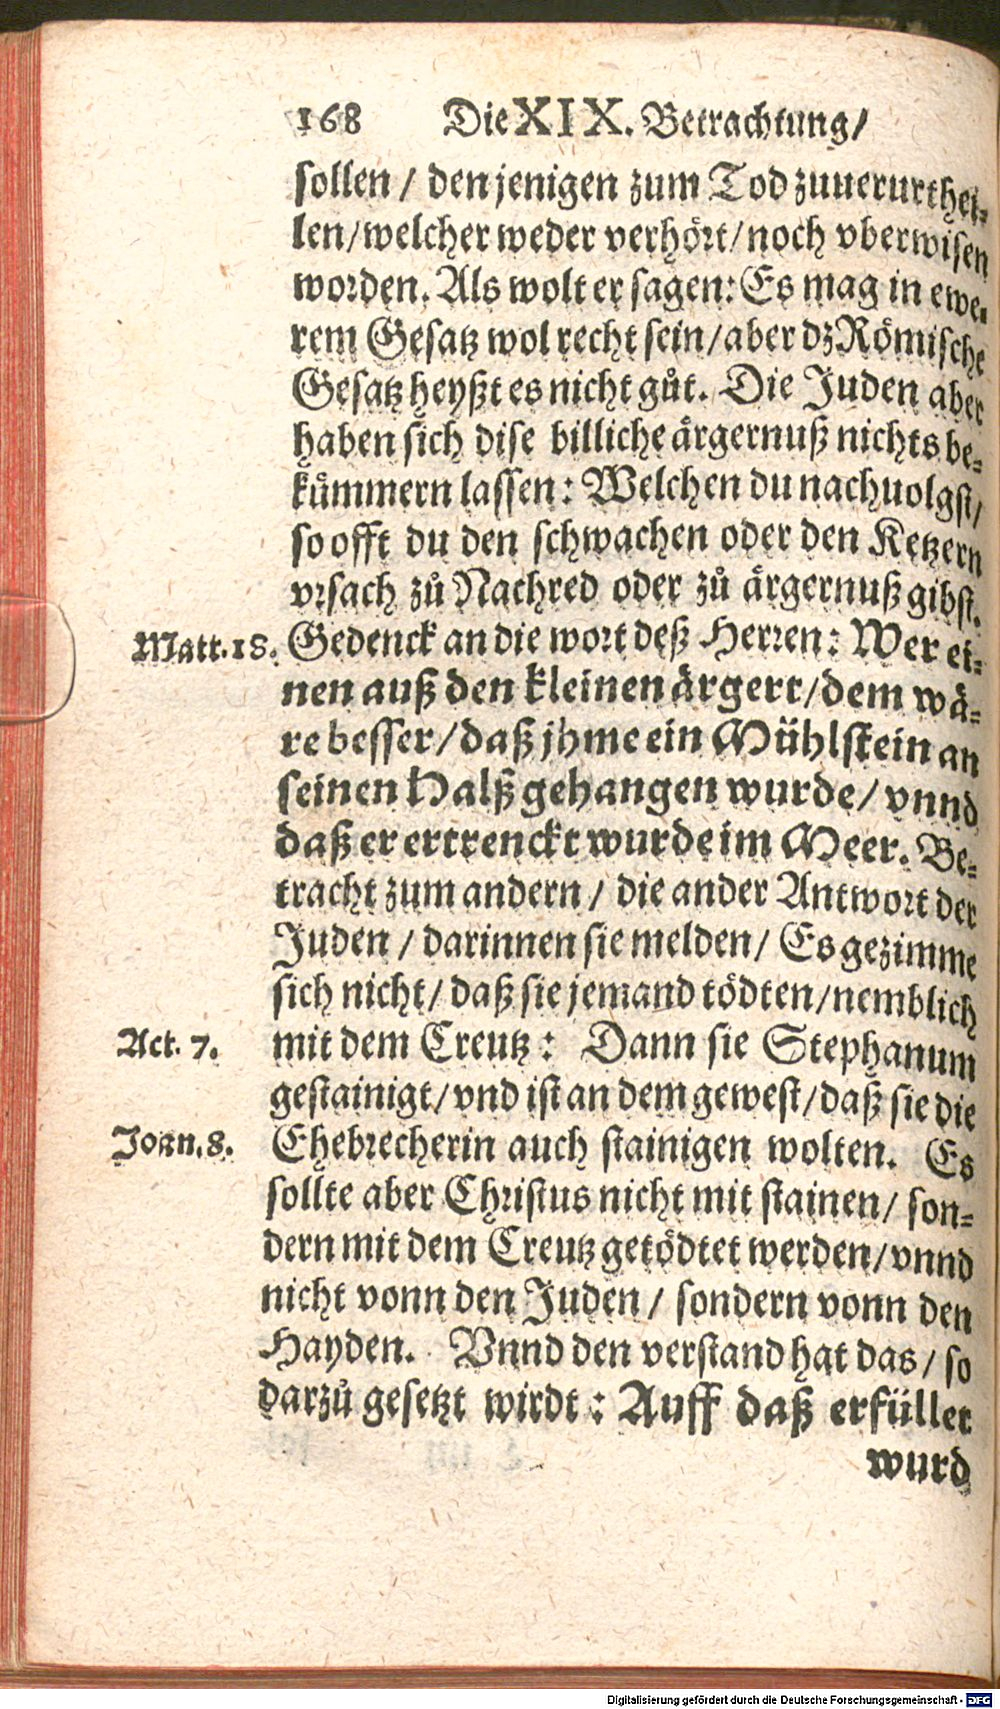 168 Die XIX. Betrachtung/
sollen / den jenigen zum Tod zuuerurthei-
len/welcher weder verhört/noch vberwisen
worden. Als wolt er sagen: Es mag in ewe-
rem Gesatz wol recht sein/aber dz Römische
Gesatz heyßt es nicht gůt. Die Juden aber
haben sich dise billiche ärgernuß nichts be-
kümmern lassen: Welchen du nachuolgst/
so offt du den schwachen oder den Ketzern
vrsach zů Nachred oder zů ärgernuß gibst.
Matt.18. Gedenck an die wort deß Herren: Wer ei-
nen auß den kleinen ärgert/dem wä-
re besser/daß jhme ein Mühlstein an
seinen Halß gehangen wurde/ vnnd
daß er ertrenckt wurde im Meer. Be-
tracht zum andern / die ander Antwort der
Juden / darinnen sie melden/ Es gezimme
sich nicht/ daß sie jemand tödten/nemblich
Act. 7. mit dem Creutz: Dann sie Stephanum
gestainigt/vnd ist an dem gewest/daß sie die
Joan.8. Ehebrecherin auch stainigen wolten. Es
sollte aber Christus nicht mit stainen/ son-
dern mit dem Creutz getödtet werden/vnnd
nicht vonn den Juden / sondern vonn den
Hayden. Vnnd den verstand hat das / so
darzů gesetzt wirdt: Auff daß erfüllet
wurd
Digitalisierung gefördert durch die Deutsche Forschungsgemeinschaft - DFG